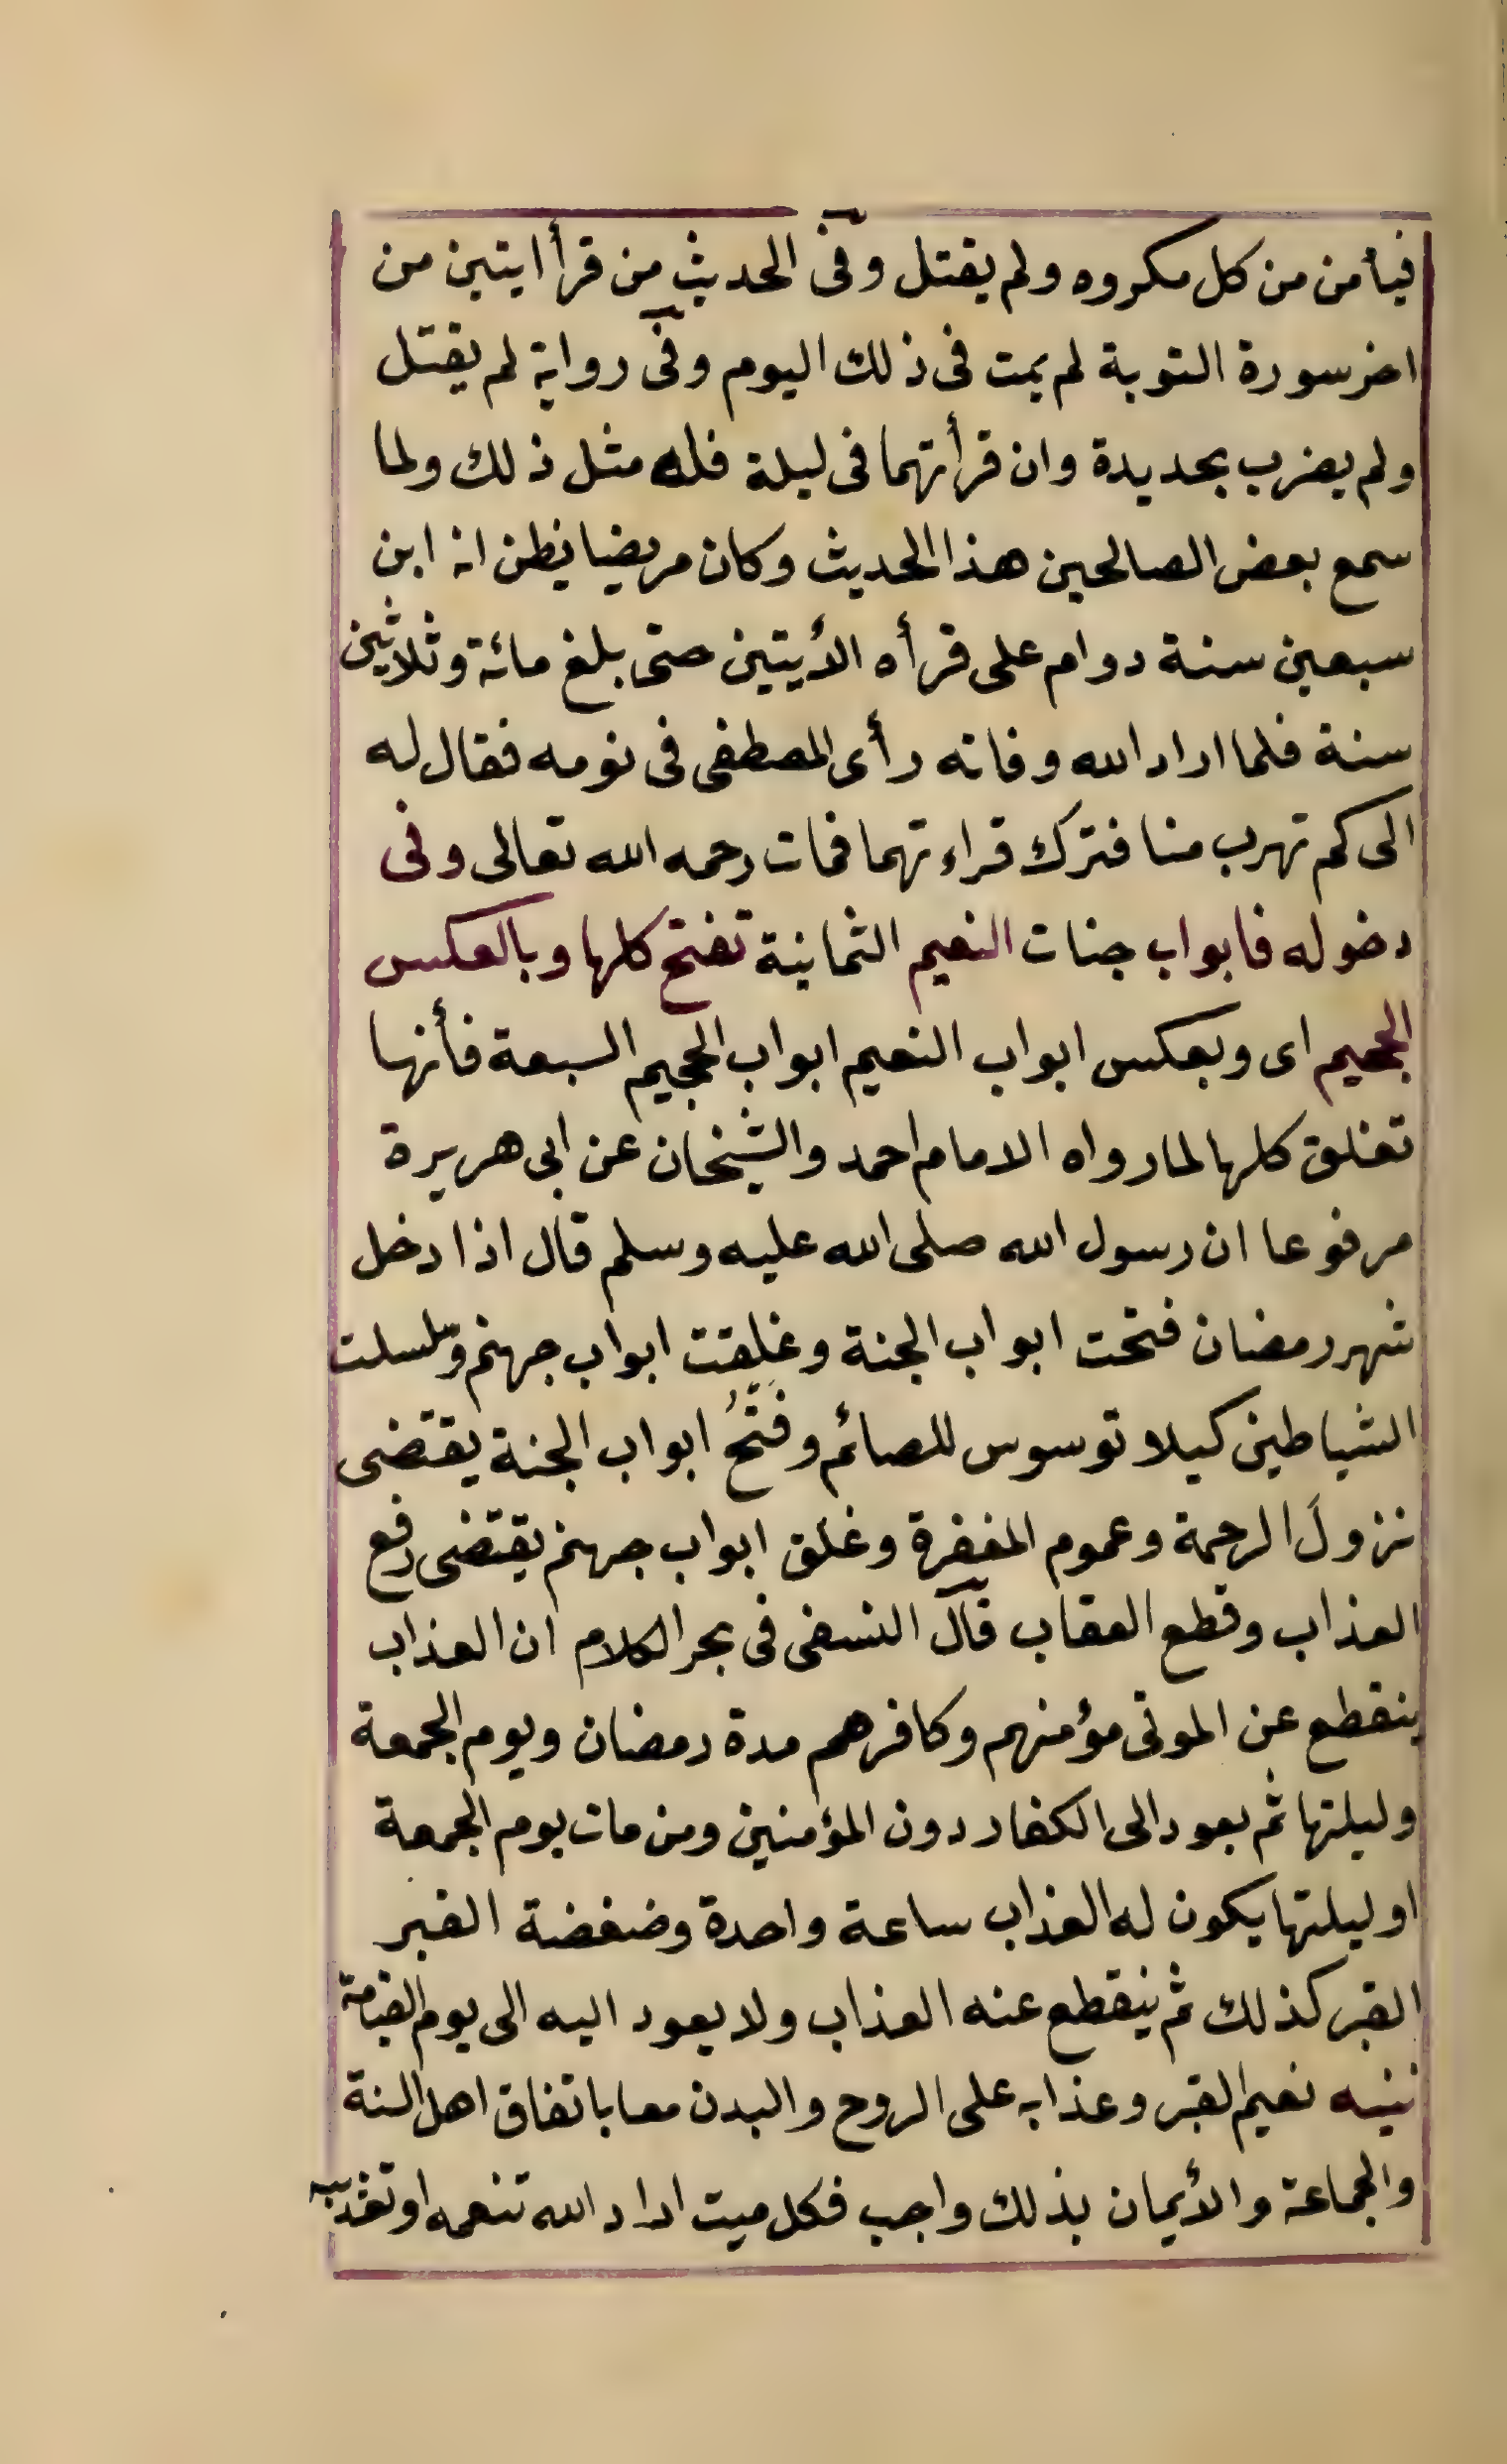 فيأمن من كل مكروه ولم يقتل وفى الحديث من قرأ ايتين من
اخر سورة التوبة لم يمت فى ذلك اليوم وفى رواية لم يقتل
ولم يضرب بحديدة وان قرأتهما فى ليلة فله مثل ذلك ولما
سمع بعض الصالحين هذا الحديث وكان مريضا يظن انه ابن
سبعين سنة دوام على قرأه الأيتين حتى بلغ مائة وثلاثين
سنة فلما اراد الله وفاته رأى المصطفى فى نومه فقال له
الى كم تهرب منا فترك قراءتهما فمات رحمه الله تعالى وفى
دخوله فابواب جنات النعيم الثمانية تفتح كلها وبالعكس
الجحيم اى وبعكس ابواب النعيم ابواب الجحيم السبعة فأنها
تغلق كلها لما رواه الامام احمد والشيخان عن ابى هريرة
مرفوعا ان رسول الله صلى الله عليه وسلم قال اذا دخل
شهر رمضان فتحت ابواب الجنة وغلِّقت ابواب جهنم وسلسلت
الشياطين كيلا توسوس للصائم وفتحُ ابواب الجنة يقتضى
نزولَ الرحمة وعموم المغفرة وغلق ابواب جهنم يقتضى رفع
العذاب وقطع العقاب قال النسفى فى بحر الكلام ان العذاب
ينقطع عن الموتى مؤمنهم وكافرهم مدة رمضان ويوم الجمعة
وليلتها ثم بعود الى الكفار دون المؤمنين ومن مات يوم الجمعة
او ليلتها يكون له العذاب ساعة واحدة وضغضة القبر
القبر كذلك ثم ينقطع عنه العذاب ولا يعود اليه الى يوم القيامة
تنبيه نعيم القبر وعذابه على الروح والبدن معا باتفاق اهل السنة
والجماعة والأيمان بذلك واجب فكل ميت اراد الله تنعمه او تعذيبه